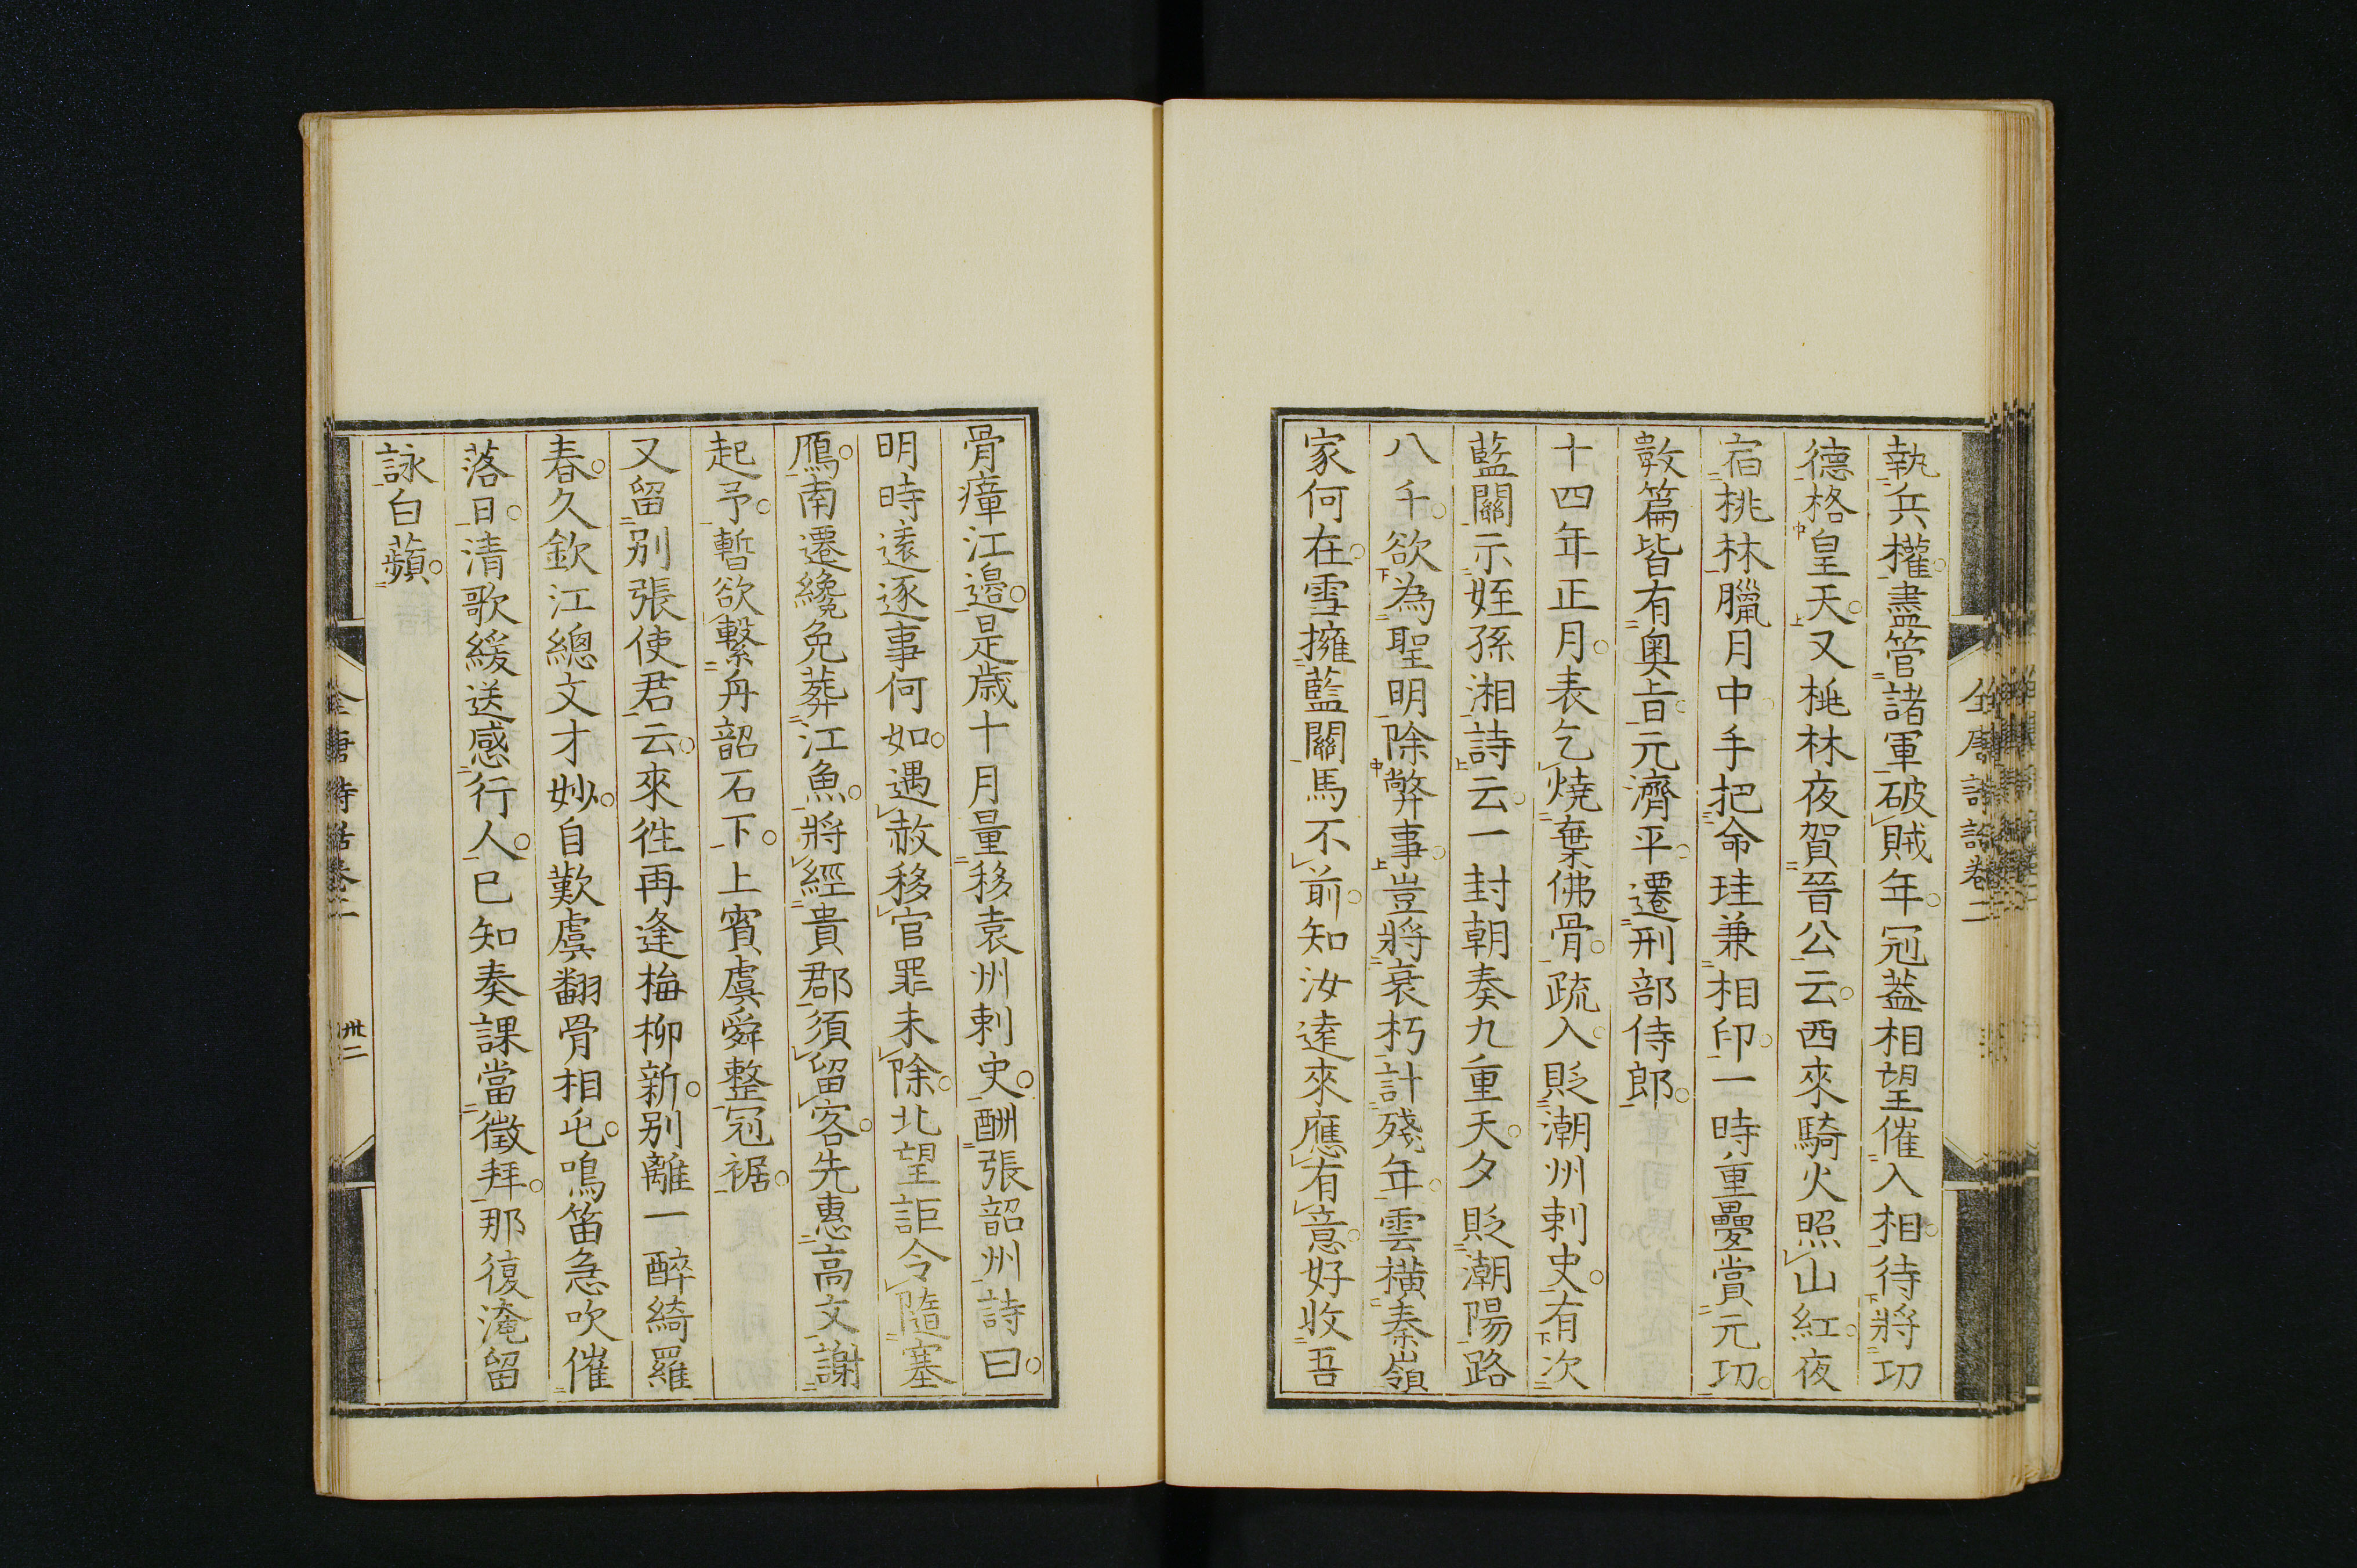 執兵權盡管諸軍破賊年冠蓋相望催入相待將功
德格皇天又桃林夜賀晉公云西來騎火照山紅夜
宿桃林臘月中手把命珪兼相印一時重疊賞元功
數篇皆有奧旨元濟平遷刑部侍郎
十四年正月表乞燒棄佛骨疏入貶潮州刺史有次
藍關示姪孫湘詩云一封朝奏九重天夕貶潮陽路
八千欲為聖明除弊事豈將衰朽計殘年雲橫秦嶺
家何在雪擁藍關馬不前知汝遠來應有意好收吾
骨瘴江邊是歲十月量移袁州刺史酬張韶州詩曰
明時遠逐事何如遇赦移官罪未除北望詎令隨塞
鴈南遷纔免葬江魚將經貴郡須留客先惠高文謝
起予暫欲繫舟韶石下上賓虞舜整冠裾
又留別張使君云來往再逢梅柳新別離一醉綺羅
春久欽江總文才妙自歎虞翻骨相屯鳴笛急吹催
落日清歌緩送感行人已知奏課當徵拜那復淹留
詠白蘋
全唐詩話卷二
全唐詩話卷二 卅二